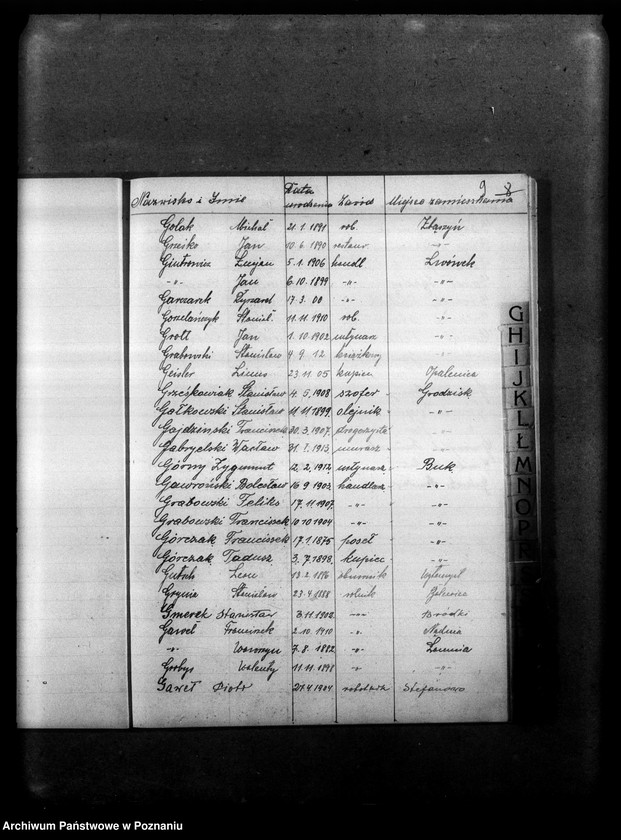 9 8
Nazwisko i Imię Data urodzenia Zawód Miejsce zamieszkania
Golak Michał 21.1.1891 rob. Zbąszyń
Greśko Jan 10.6.1890 restaur. -"-
Lucjan 5.1.1906 handl Lwówek
-"- Jan 6.10.1899 -"- -"-
Garczarek Ryszard 17.3.00 -"- -"-
Gorzelańczyk Stanisł. 11.11.1910 rob. -"-
Grott Jan 1.10.1902 -"-
Grabowski Stanisław 4.9.12 księgowy -"-
Geisler Linus 23.11.05 kupiec Opalenica
Grześkowiak Stanisław 4.5.1908 szofer Grodzisk
Gałkowski Stanisław 11.11.1899. olejnik -"-
Gajdziński Franciszek 30.3.1907. drogerzysta -"-
Gabryelski Wacław 1913. murarz -"-
Górny Zygmunt 12.2.1912. Buk
Gawroński Bolesław 16.9.1903. handlarz -"-
Grabowski Feliks 17.11.1907 -"- -"-
Grabowski Franciszek 10.10.1904 -"- -"-
Górczak Franciszek 17.1.1875 poseł -"-
Górczak Tadusz. 3.7.1898. kupiec -"-
Leon 13.2.1896
Stanisław 23.4.1888 rolnik
Gmerek Stanisław 3.11.1902 -"- Bródki
Gaweł Franciszek 2.10.1910 -"-
-"- Wawrzyn 7.8.1882 -"- Łomnia
Grobys Walenty 11.11.1898 -"- -"-
Gaweł Piotr 21.4.1904 Stefanowo
G
H
I
J
K
L
Ł
M
N
O
P
R
Archiwum Państwowe w Poznaniu